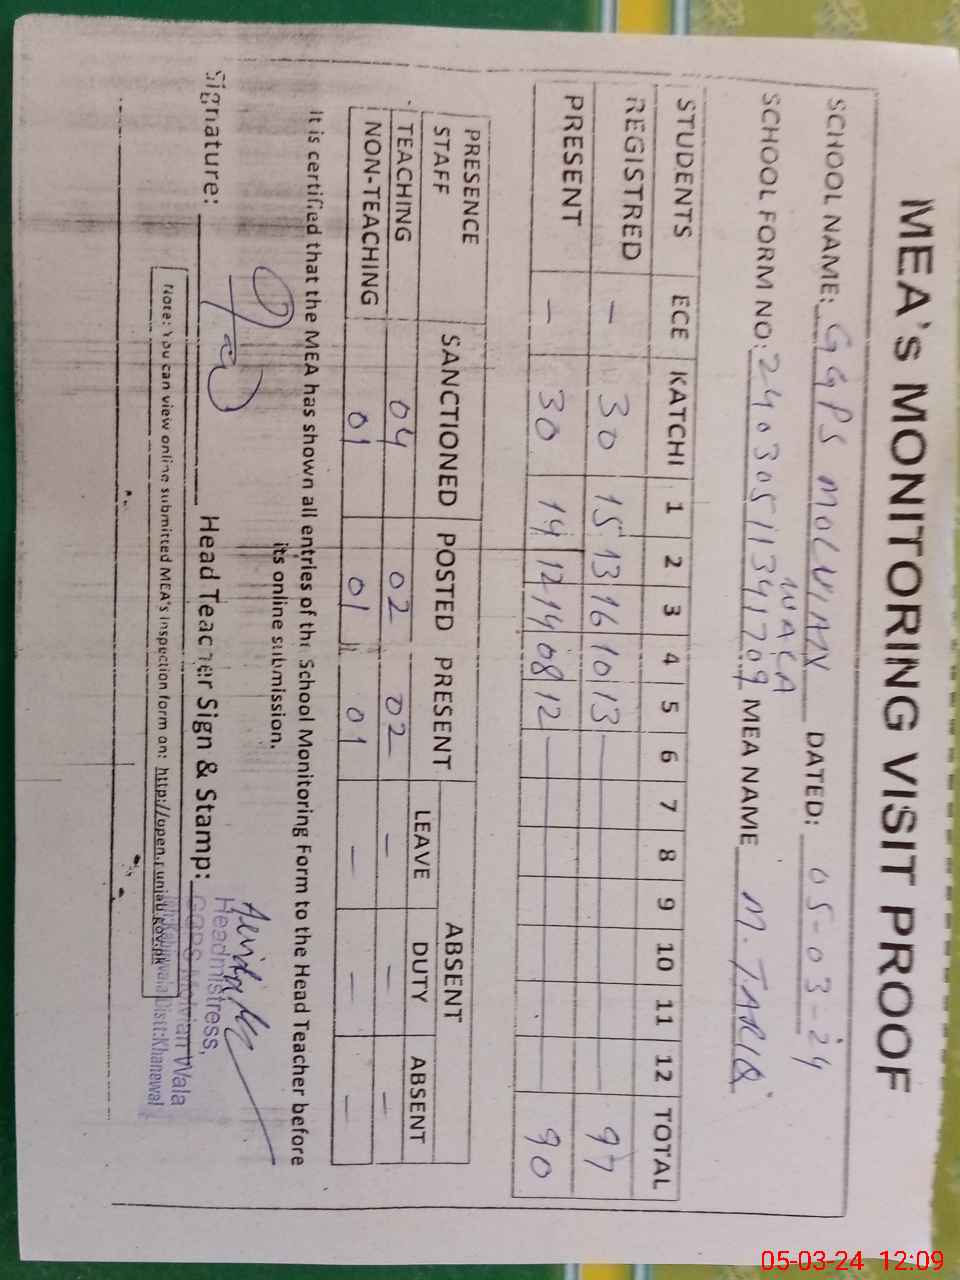 MEA's MONITORING VISIT PROOF
SCHOOL NAME: GGPS MOLVIAN WALA DATED: 05-03-24
SCHOOL FORM NO: 24030511341709 MEA NAME M. TARIQ
STUDENTS ECE KATCHI 1 2 3 4 5 6 7 8 9 10 11 12 TOTAL
REGISTRED — 30 15 13 16 10 13 97
PRESENT — 30 14 12 14 08 12 90
PRESENCE STAFF SANCTIONED POSTED PRESENT ABSENT
LEAVE DUTY ABSENT
TEACHING 04 02 02 — — —
NON-TEACHING 01 01 01 — — —
It is certified that the MEA has shown all entries of the School Monitoring Form to the Head Teacher before
its online submission.
Signature: Head Teacher Sign & Stamp:
Headmistress,
GGPS Molvian Wala
Distt:Khanewal
Note: You can view online submitted MEA's inspection form on: http://open.punjab.gov.pk
05-03-24 12:09